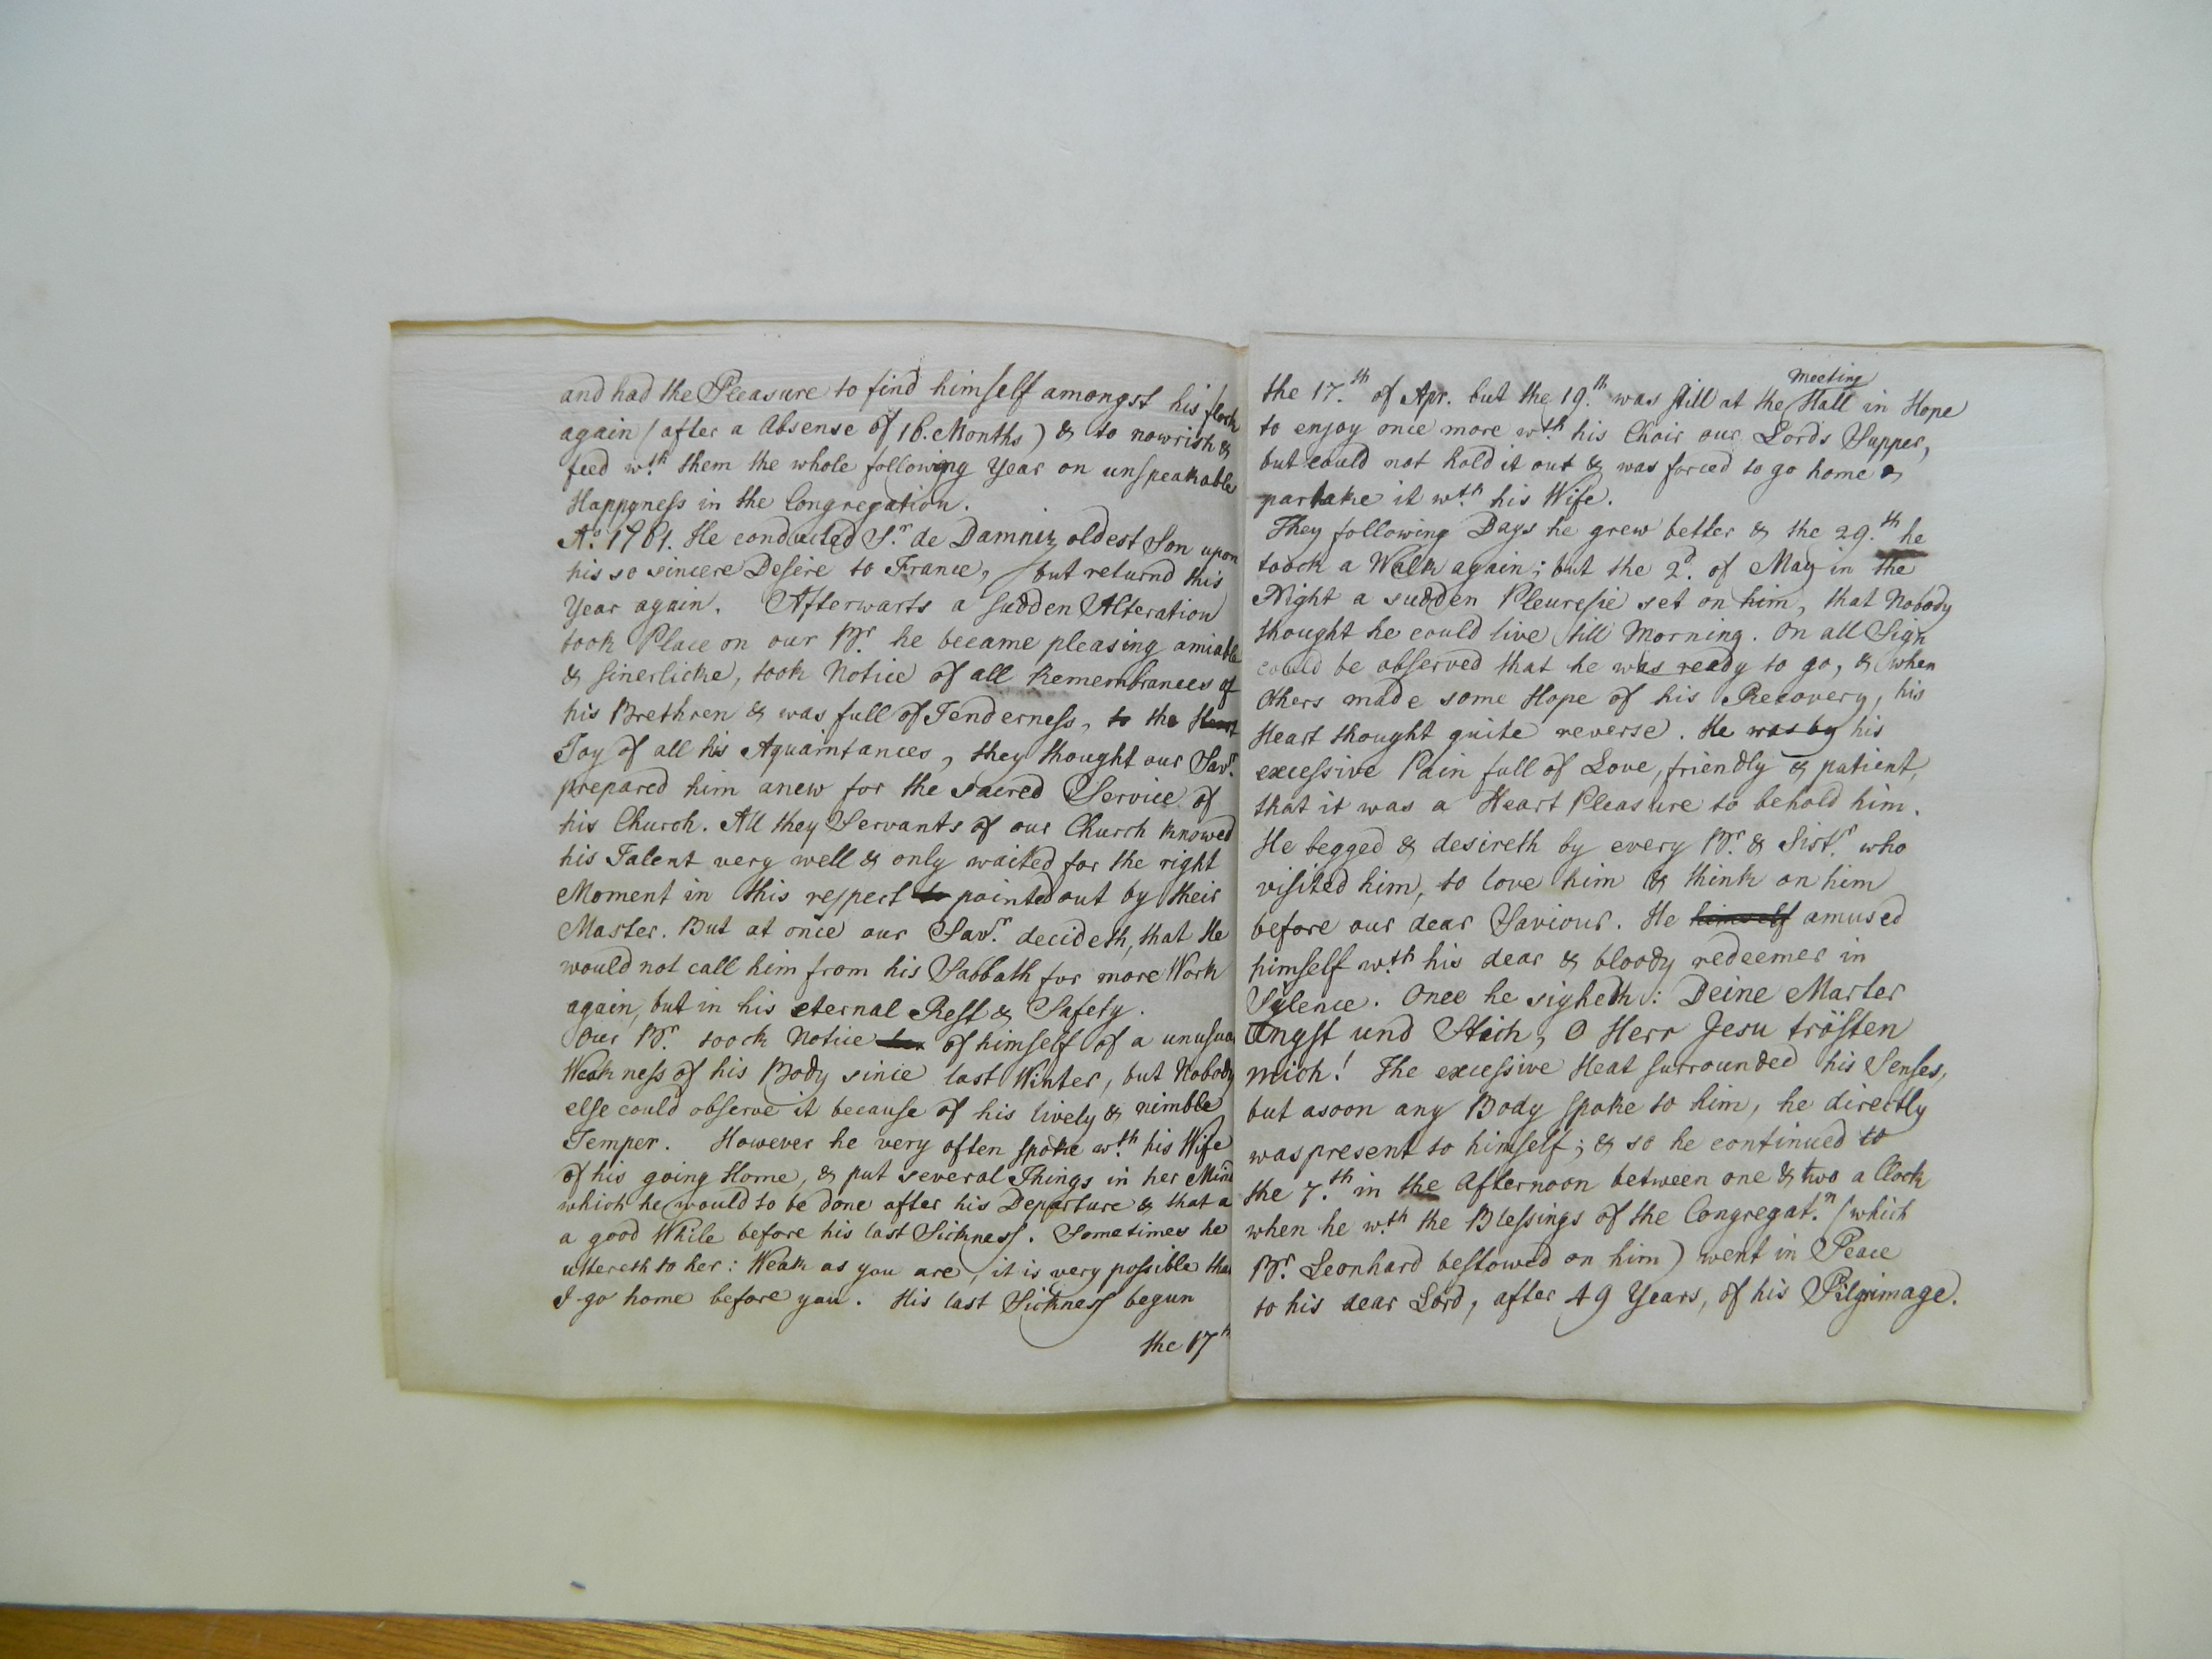 and had the Pleasure to find himself amongst his flock
again (after a Absense of 16. Months) & to nowrish &
feed wth. them the whole following Year on unspeakable
Happyness in the Congregation.
Ao. 1761. He conducted Sr. de Damniz oldest Son upon
his so sincere Desire to France, but returnd this
Year again. Afterwarts a sudden Alteration
took Place on our Br. he became pleasing amiable
& sinerlicke, took Notice of all Remembrances of
his Brethren & was full of Tenderness, to the Heart
Joy of all his Aquaintances, they thought our Savr.
prepared him anew for the sacred Service of
his Church. All they Servants of our Church knowed
his Talent very well & only waited for the right
Moment in this respect to pointed out by their
Master. But at once our Savr. decideth, that He
would not call him from his Sabbath for more Work
again, but in his eternal Rest & Safety.
Our Br. toock Notice of himself of a unusual
Weakness of his Body since last Winter, but Nobody
else could observe it because of his lively & nimble
Temper. However he very often spoke wth. his Wife
of his going Home, & put several Things in her Mind
which he would to be done after his Departure & that a
a good While before his last Sickness. Sometimes he
uttereth to her: Weak as you are, it is very possible that
I go home before you. His last Sickness begun
the 17th
the 17.th of Apr. but the 19.th was still at the Meeting Hall in Hope
to enjoy once more wth. his Choir our Lords Supper,
but could not hold it out & was forced to go home &
partake it wth. his Wife.
They following Days he grew better & the 29.th he
toock a Walk again; but the 2d. of May in the
Night a sudden Pleuresie set on him, that Nobody
thought he could live till Morning. On all Sign
could be observed that he was ready to go, & when
Others made some Hope of his Recovery, his
Heart thought quite reverse. He was by his
excessive Pain full of Love, friendly & patient,
that it was a Heart Pleasure to behold him.
He begged & desireth by every Br. & Sistr. who
visited him, to love him & think on him
before our dear Saviour. He himself amused
himself wth. his dear & bloody redeemer in
Sylence. Once he sigheth: Deine Marter
Angst und Stich, O Herr Jesu trösten
mich! The excessive Heat surrounded his Senses,
but asoon any Body spoke to him, he directly
was present to himself; & so he continued to
the 7.th in the Afternoon between one & two a Clock
when he wth. the Blessings of the Congregat.n (which
Br. Leonhard bestowed on him) went in Peace
to his dear Lord, after 49 Years, of his Pilgrimage.